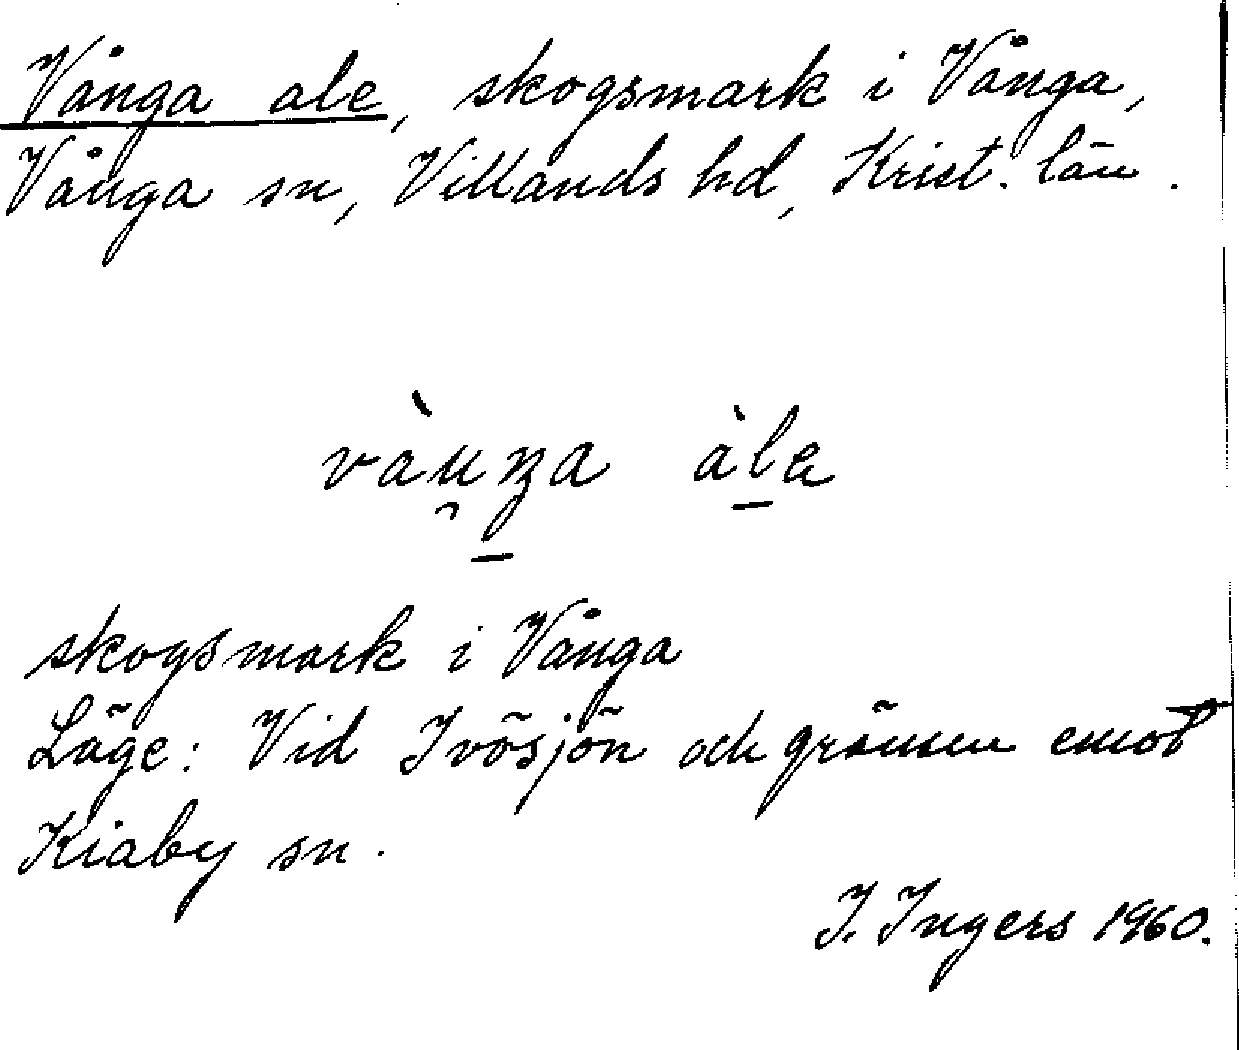 Vånga ale, skogsmark i Vånga,
Vånga sn, Villands hd, Krist. län.
vàu̯ŋa àlа
skogsmark i Vånga
Läge: Vid Ivösjön och gränsen emot
Kiaby sn.
I. Ingers 1960.